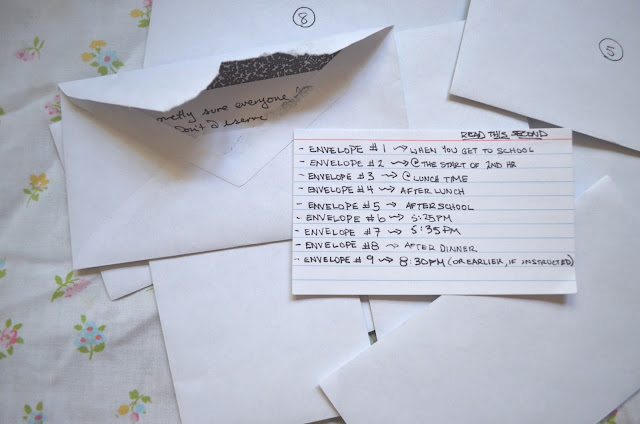 8
5
sure everyone
READ THIS SECOND
- ENVELOPE #1 → WHEN YOU GET TO SCHOOL
- ENVELOPE #2 → @ THE START OF 2ND HR
- ENVELOPE #3 → @ LUNCH TIME
- ENVELOPE #4 → AFTER LUNCH
- ENVELOPE #5 → AFTER SCHOOL
- ENVELOPE #6 → 5:25PM
- ENVELOPE #7 → 5:35PM
- ENVELOPE #8 → AFTER DINNER
- ENVELOPE #9 → 8:30PM (OR EARLIER, IF INSTRUCTED)